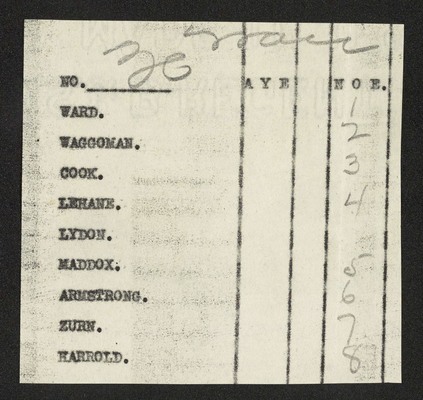 NO. 36 AYE NOE.
WARD. 1
WAGGOMAN. 2
COOK. 3
LEHANE. 4
LYDON.
MADDOX. 5
ARMSTRONG. 6
ZURN. 7
HARROLD. 8